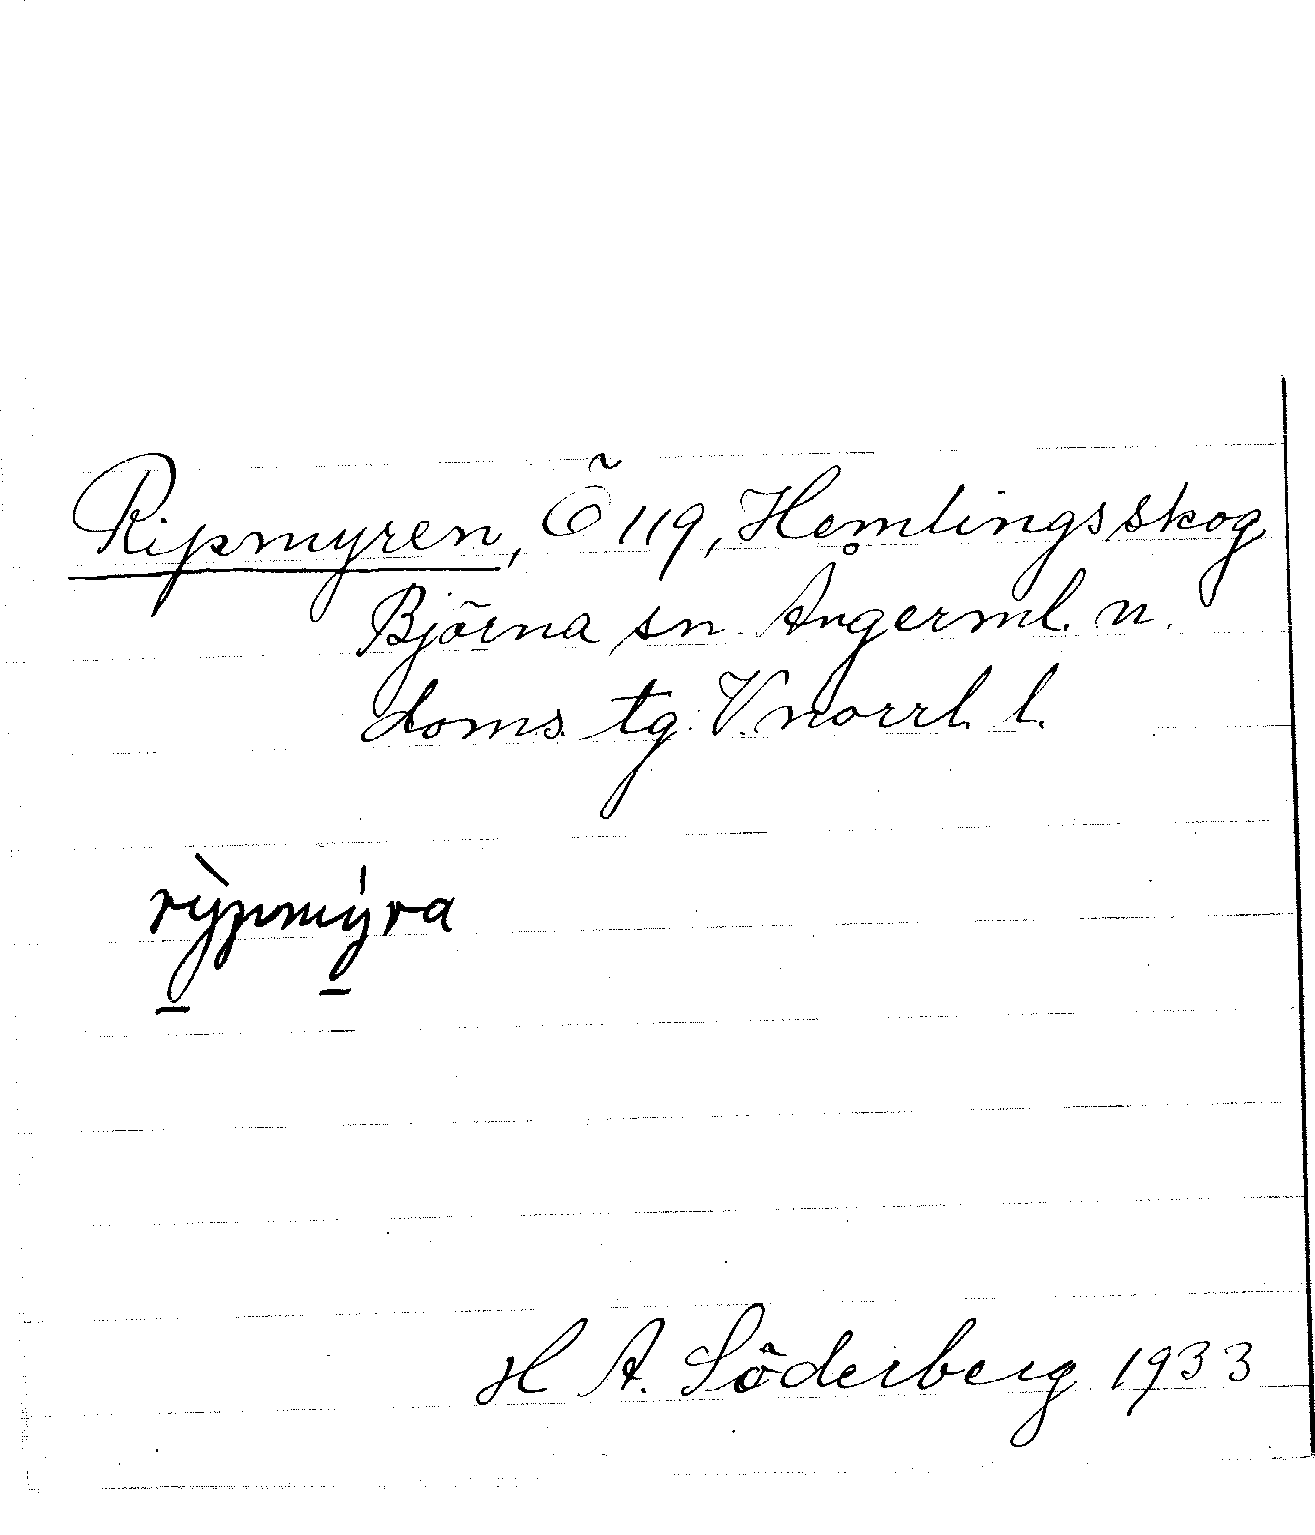 Ripmyren, Ö 119, Hemlingsskog
Björna sn Ångerml. n.
doms. tg. V.norrl. l.
rỳpmýra
H A. Söderberg 1933